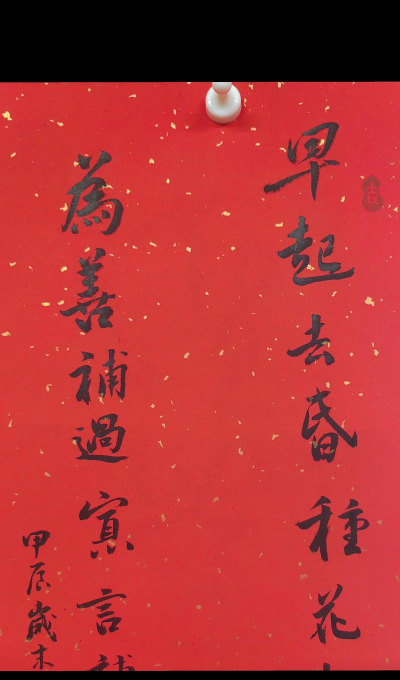 早起去昏種花
為善補過寡言
甲辰歲末